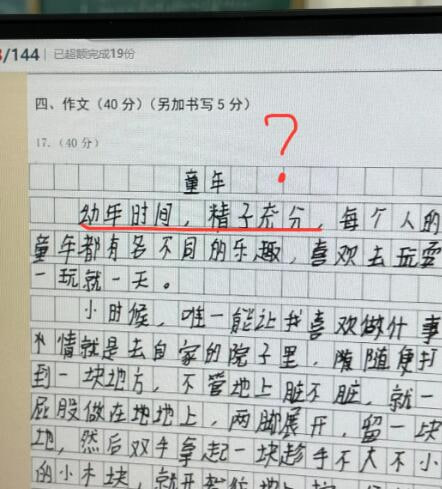 /144 已超额完成19份
四、作文（40分）（另加书写5分）
17.（40分）
?
童年
幼年时间，精子充分，每个人的
童年都有各不同的乐趣，喜欢去玩耍
一玩就一天。
小时候，唯一能让我喜欢做什事
情就是去自家的院子里，随便扑
到一块地方，不管地上脏不脏，就一
屁股做在地地上，两脚展开，留一块
地，然后双手拿起一块趁手不大不小
的小木块，就开